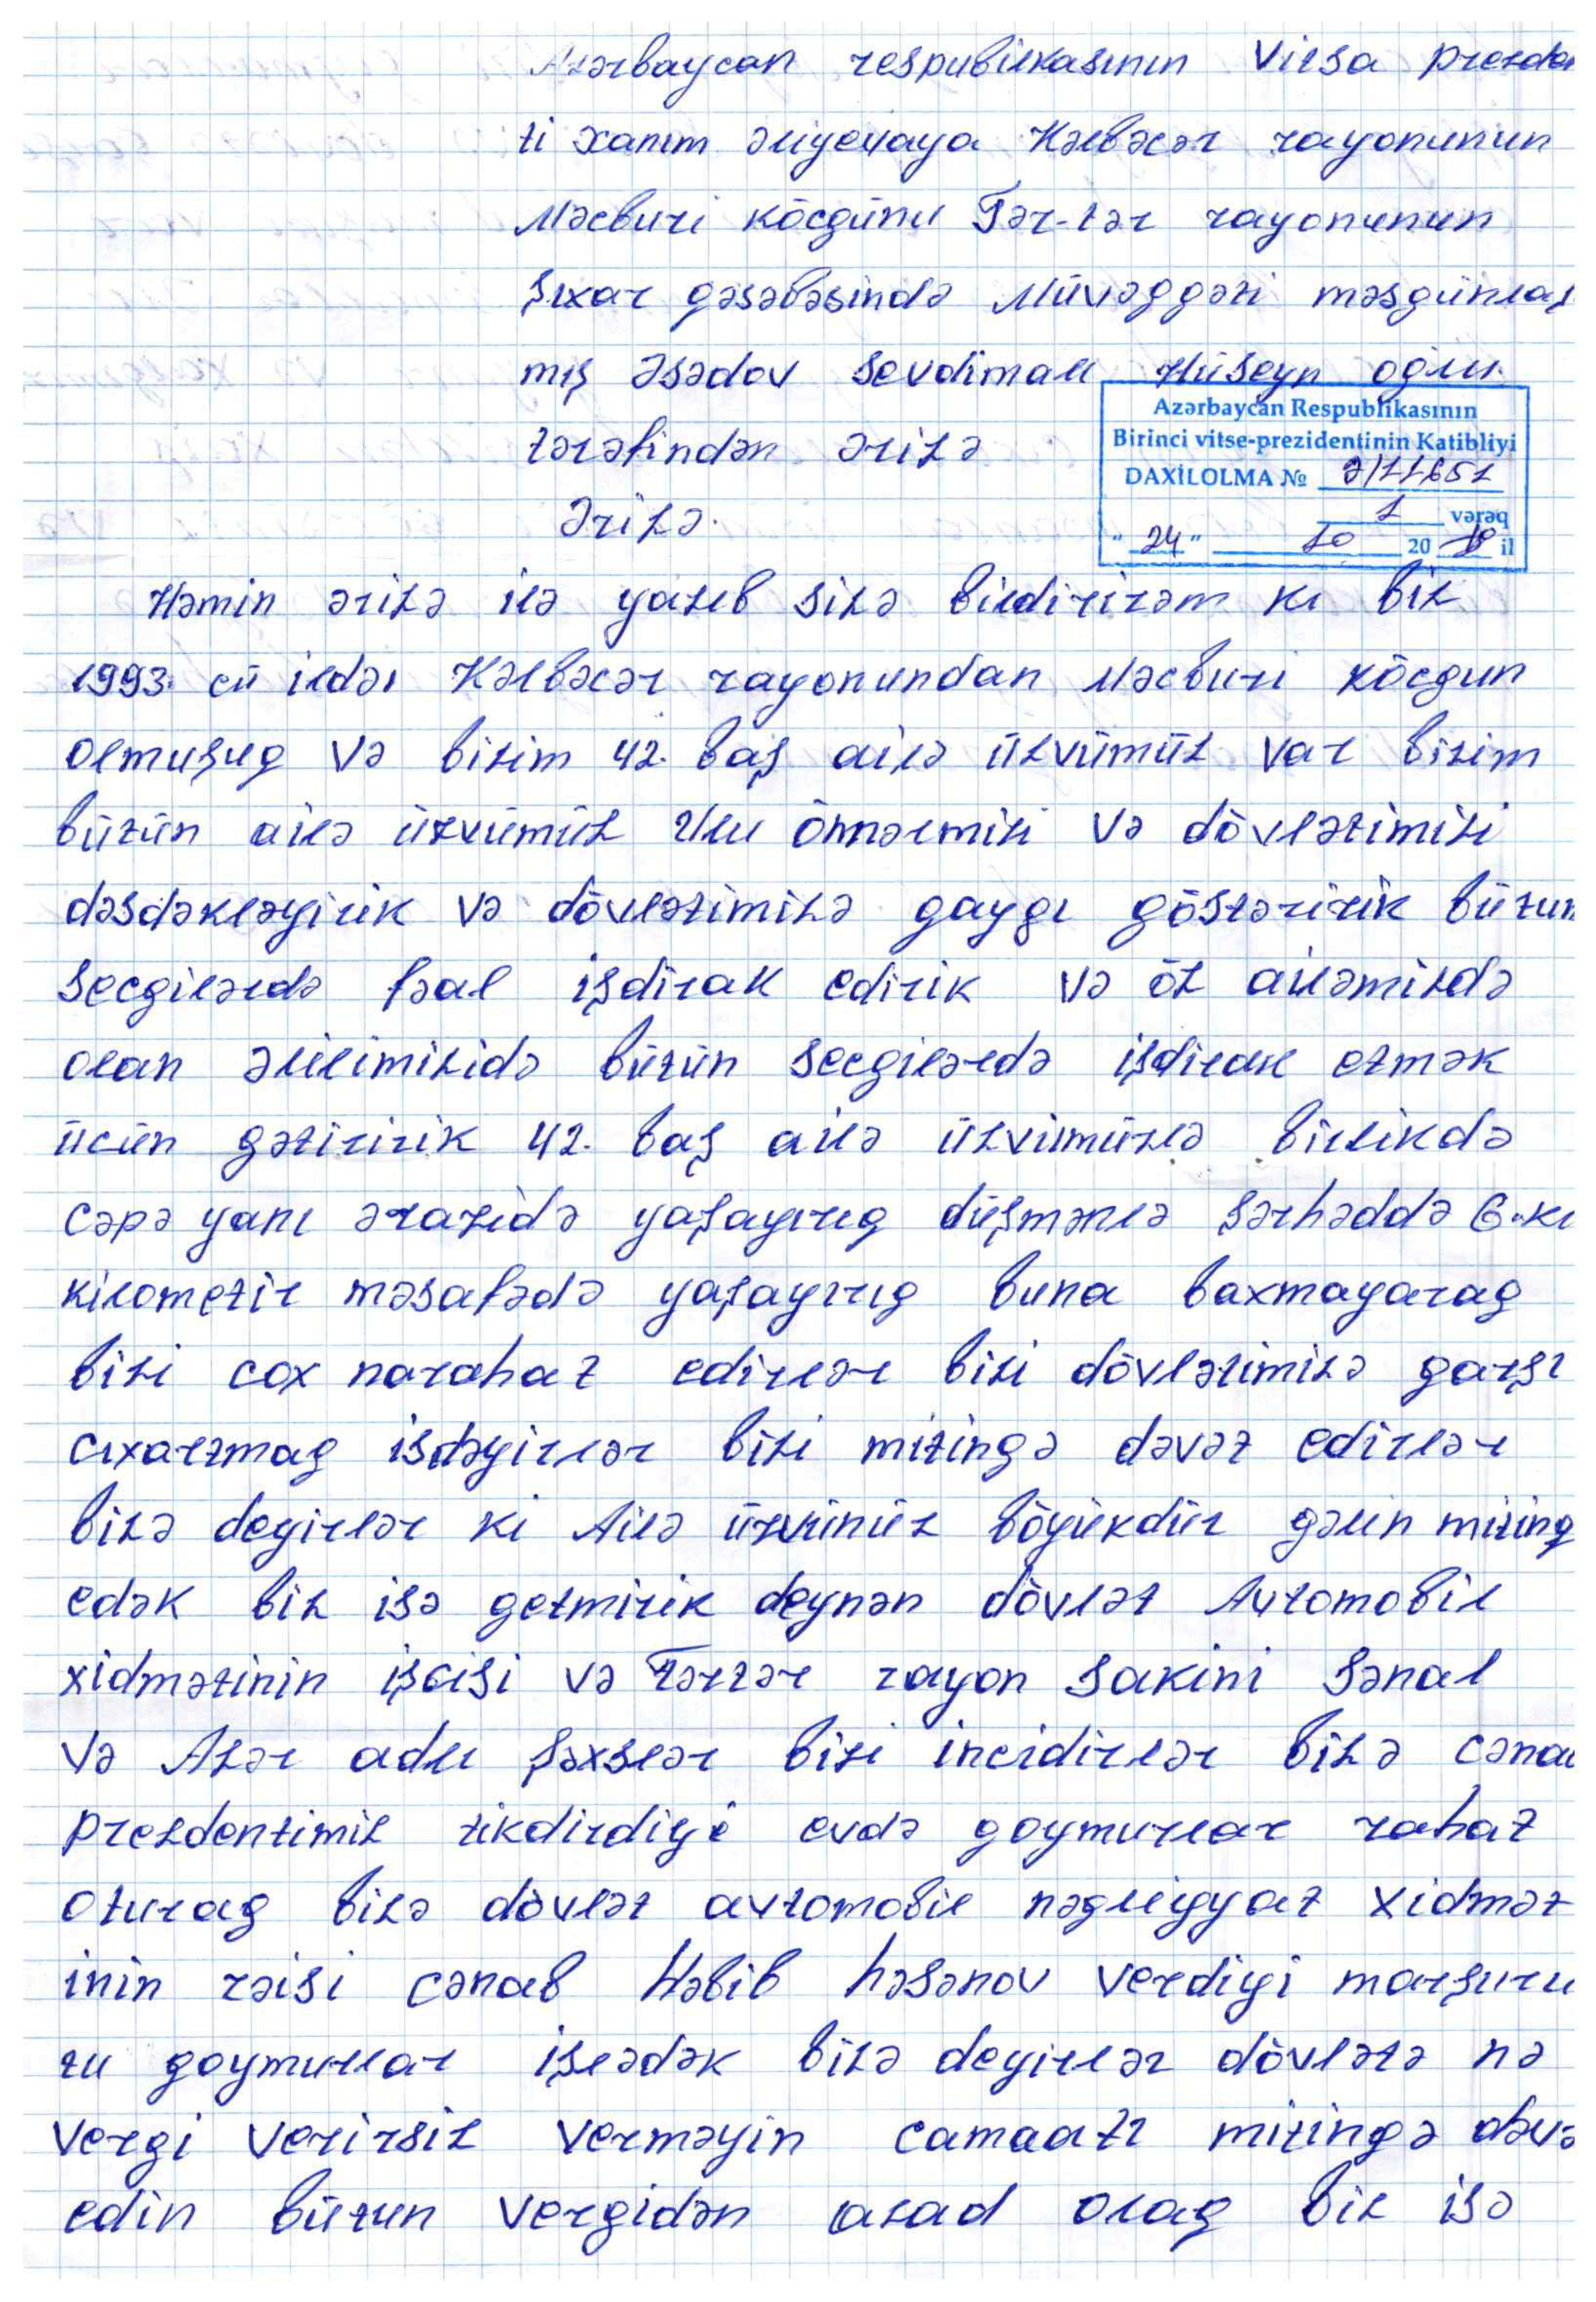 Azərbaycan respubilkasının Vitsa prezden
ti xanım əliyevaya Kəlbəcər rayonunun
Məcburi köcgünü Tər-tər rayonunun
Şıxar gəsəbəsində Müvəggəti məsgünlaş
mış Əsədov Sevdimalı Hüseyn oğlu
tərəfindən ərizə
Azərbaycan Respublikasının
Birinci vitse-prezidentinin Katibliyi
DAXİLOLMA № Ə/11651
1 vərəq
"24" 10 20 il
Ərizə.
Həmin ərizə ilə yazıb sizə bildirirəm kı biz
1993. cü ildən Kəlbəcər rayonundan Məcburi köcgun
olmuşug və bizim 42. baş ailə üzvümüz var bizim
bütün ailə üzvümüz Ulu önnərmizi və dövlətimizi
dəsdəkləyirik və dövlətimizə gaygı göstəririk bütün
secgilərdə fəal işdirak edirik və öz ailəmizdə
olan əlilimizidə bütün secgilərdə işdirak etmək
ücün gətiririk 42. baş ailə üzvümüzlə birlikdə
cəpə yanı ərazidə yaşayırıg düşmənlə sərhəddə 6.kı
kilometir məsafədə yaşayırıg buna baxmayarag
bizi cox narahat edirlər bizi dövlətimizə garşı
cıxartmag isdəyirlər bizi mitingə dəvət edirlər
bizə deyirlər ki Ailə üzvünüz böyükdür gəlin miting
edək biz isə getmirik deynən dövlət Avtomobil
xidmətinin işcisi və Tərtər rayon sakini Sənal
və Azər adlı şəxslər bizi incidirlər bizə cənab
prezdentimiz tikdirdiyi evdə goymurlar rahat
oturag bizə dövlət avtomobil nəgliyyat xidmət
inin rəisi cənab Həbib həsənov verdiyi marşuru
tu goymurlar işlədək bizə deyirlər dövlətə nə
vergi verirsiz verməyin camaatı mitingə dəvə
edin bütun vergidən azad olag biz isə